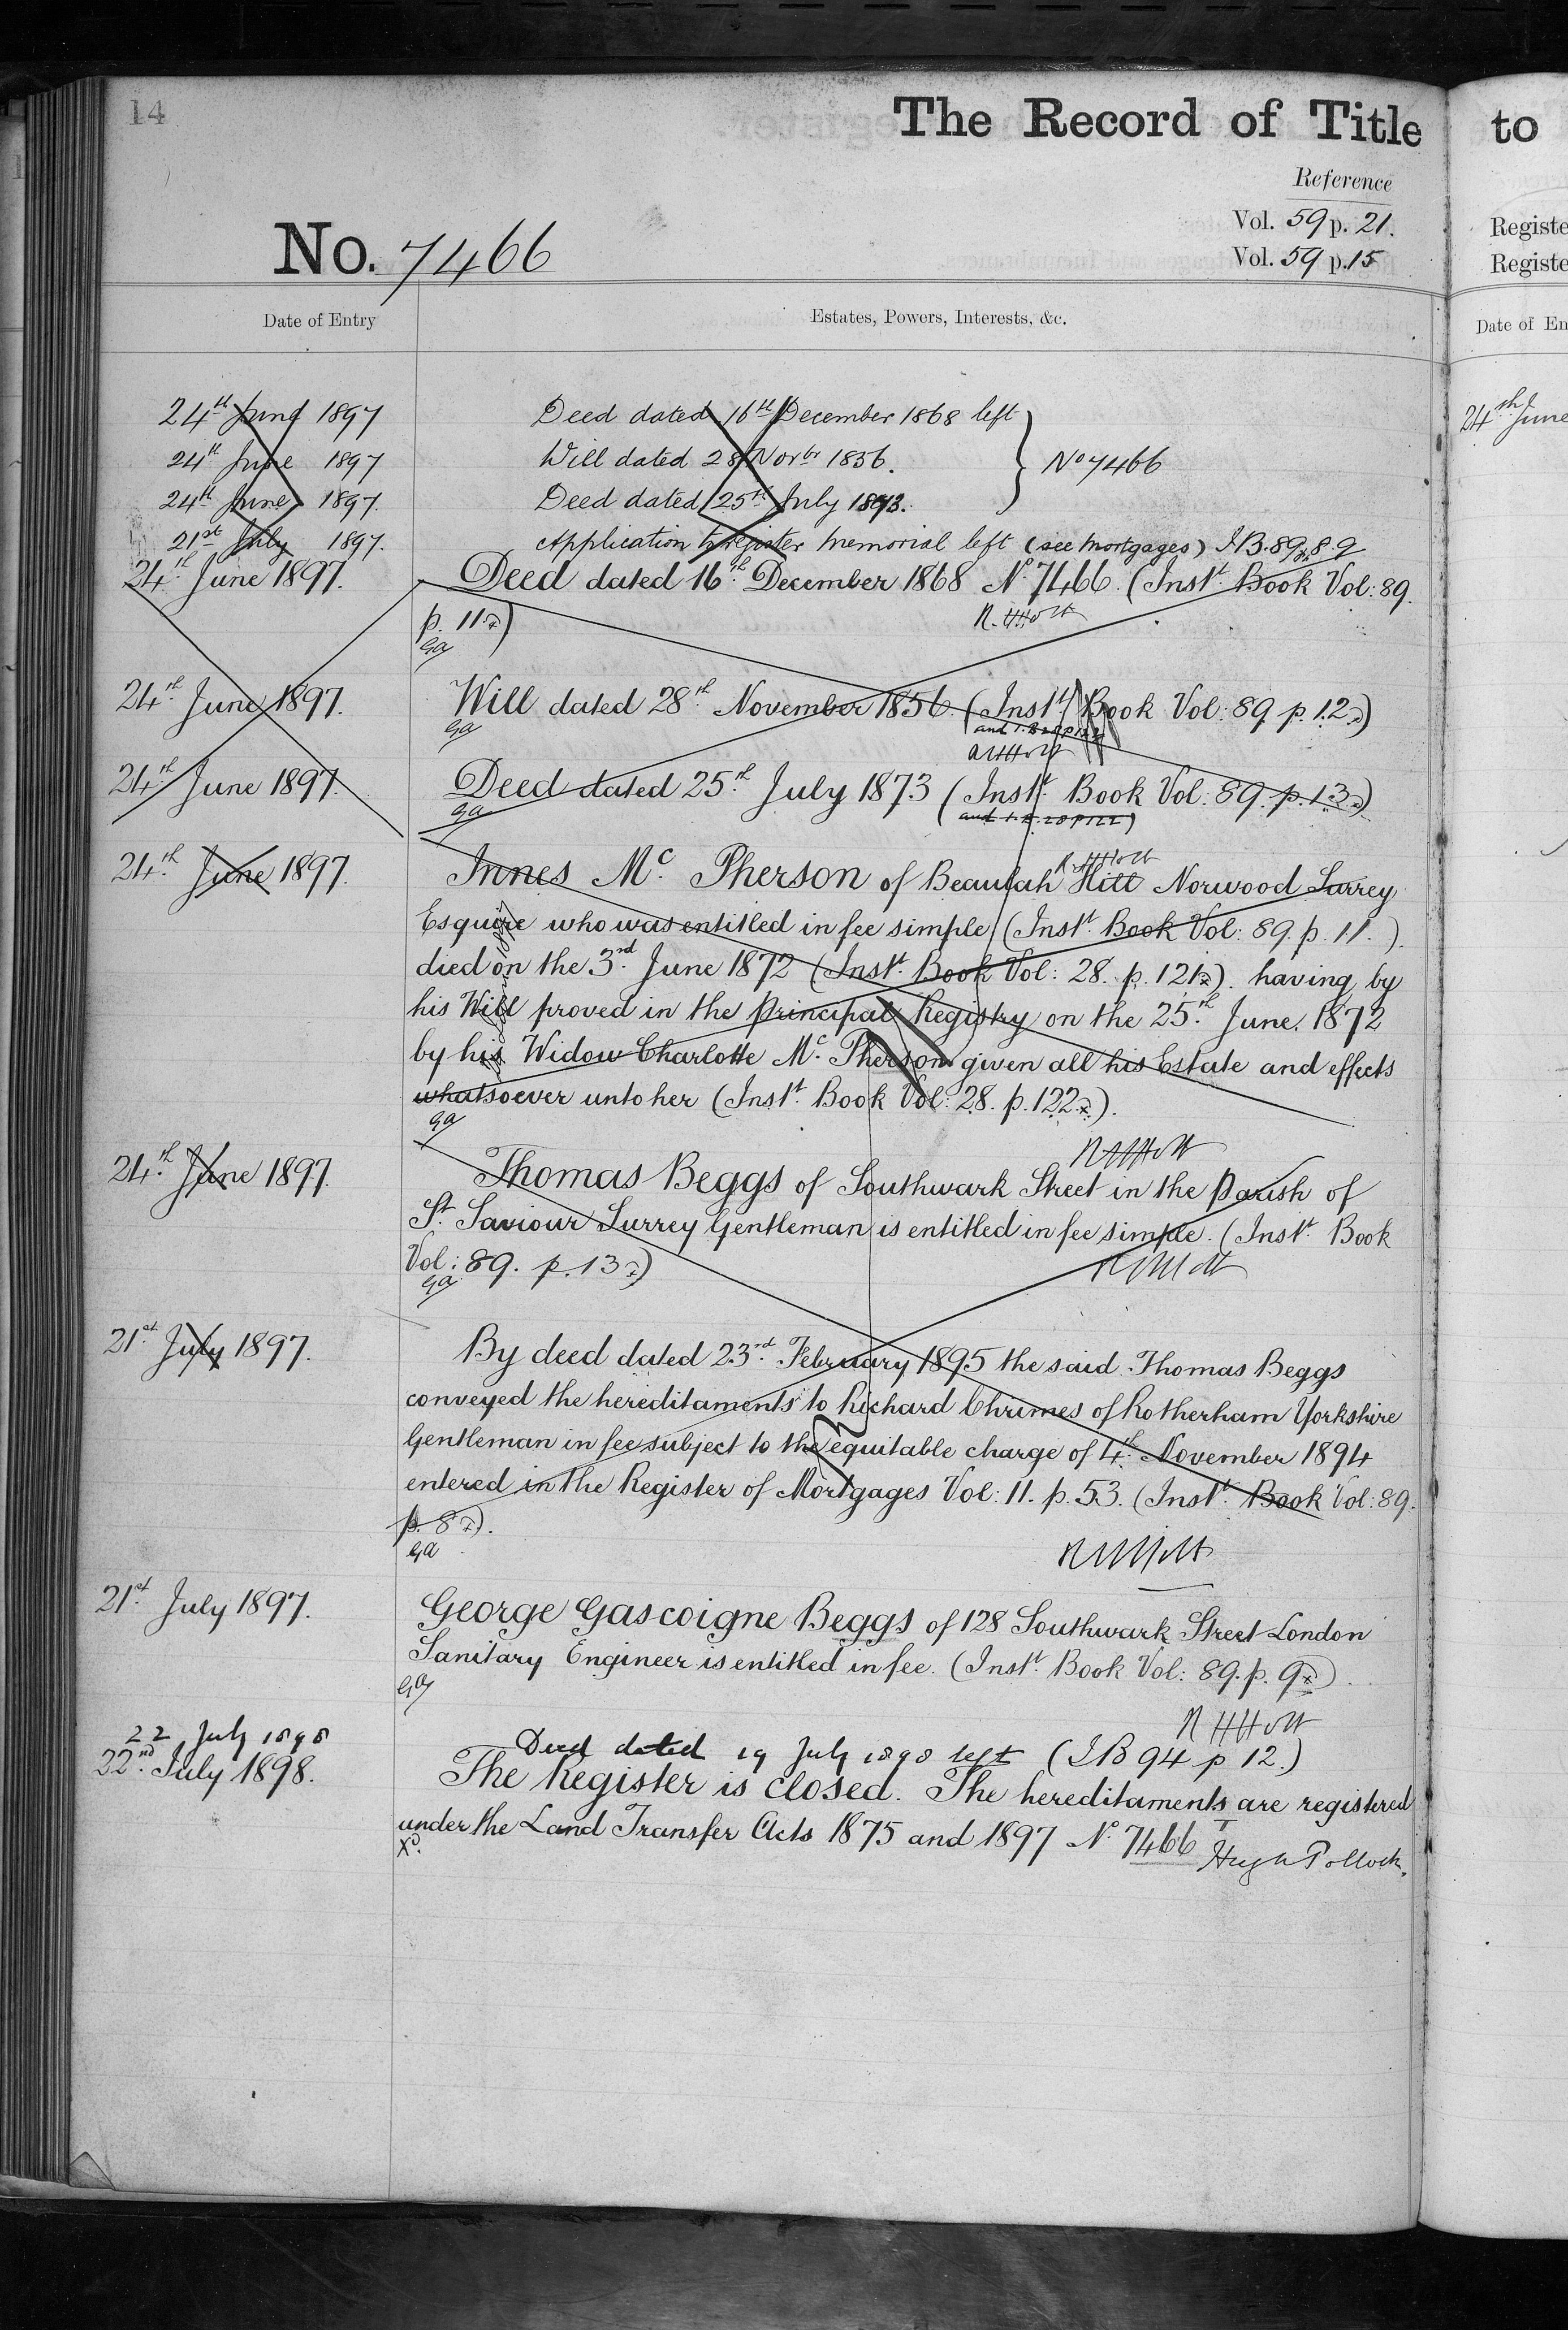 14
The Record of Title
to
Reference
Vol. 59 p. 21.
Vol. 59 p. 15
No. 7466
Registe
Registe
Date of Entry
Estates, Powers, Interests, &c.
Date of En
24th June 1897 Deed dated 16th December 1868 left
24th June 1897 Will dated 28 Novbr 1856. No 7466
24th June 1897. Deed dated 25th July 1873.
21st July 1897. Application to register memorial left (see mortgages) I.B. 89 p 8. 9
24th June
24th June 1897. Deed dated 16th December 1868 No. 7466. (Inst. Book Vol: 89.
p. 11)
GA
24th June 1897. Will dated 28th November 1856. (Inst. Book Vol: 89 p. 12)
GA
24th June 1897. Deed dated 25th July 1873 (Inst. Book Vol: 89. p. 13)
GA and I.B. 28 p 122)
24th June 1897. Innes Mc. Pherson of Beaulah Hill Norwood Surrey
Esquire who was entitled in fee simple (Inst. Book Vol: 89. p. 11.)
died on the 3rd June 1872 (Inst. Book Vol: 28. p. 121). having by
his Will proved in the Principal Registry on the 25th June. 1872
by his Widow Charlotte Mc. Pherson given all his Estate and effects
whatsoever unto her (Inst. Book Vol: 28. p. 122).
GA
24th June 1897. Thomas Beggs of Southwark Street in the Parish of
St. Saviour Surrey Gentleman is entitled in fee simple. (Inst. Book
Vol: 89. p. 13)
GA
21st July 1897. By deed dated 23rd February 1895 the said Thomas Beggs
conveyed the hereditaments to Richard Chrimes of Rotherham Yorkshire
Gentleman in fee subject to the equitable charge of 4th November 1894
entered in the Register of Mortgages Vol: 11. p. 53. (Inst. Book Vol: 89.
p. 8).
GA
21st July 1897. George Gascoigne Beggs of 128 Southwark Street London
Sanitary Engineer is entitled in fee. (Inst. Book Vol: 89. p. 9)
GA
22 July 1898 Deed dated 19 July 1898 left (I B 94 p 12.)
22nd July 1898. The Register is closed. The hereditaments are registered
under the Land Transfer Acts 1875 and 1897 No. 7466
Hugh Pollock.